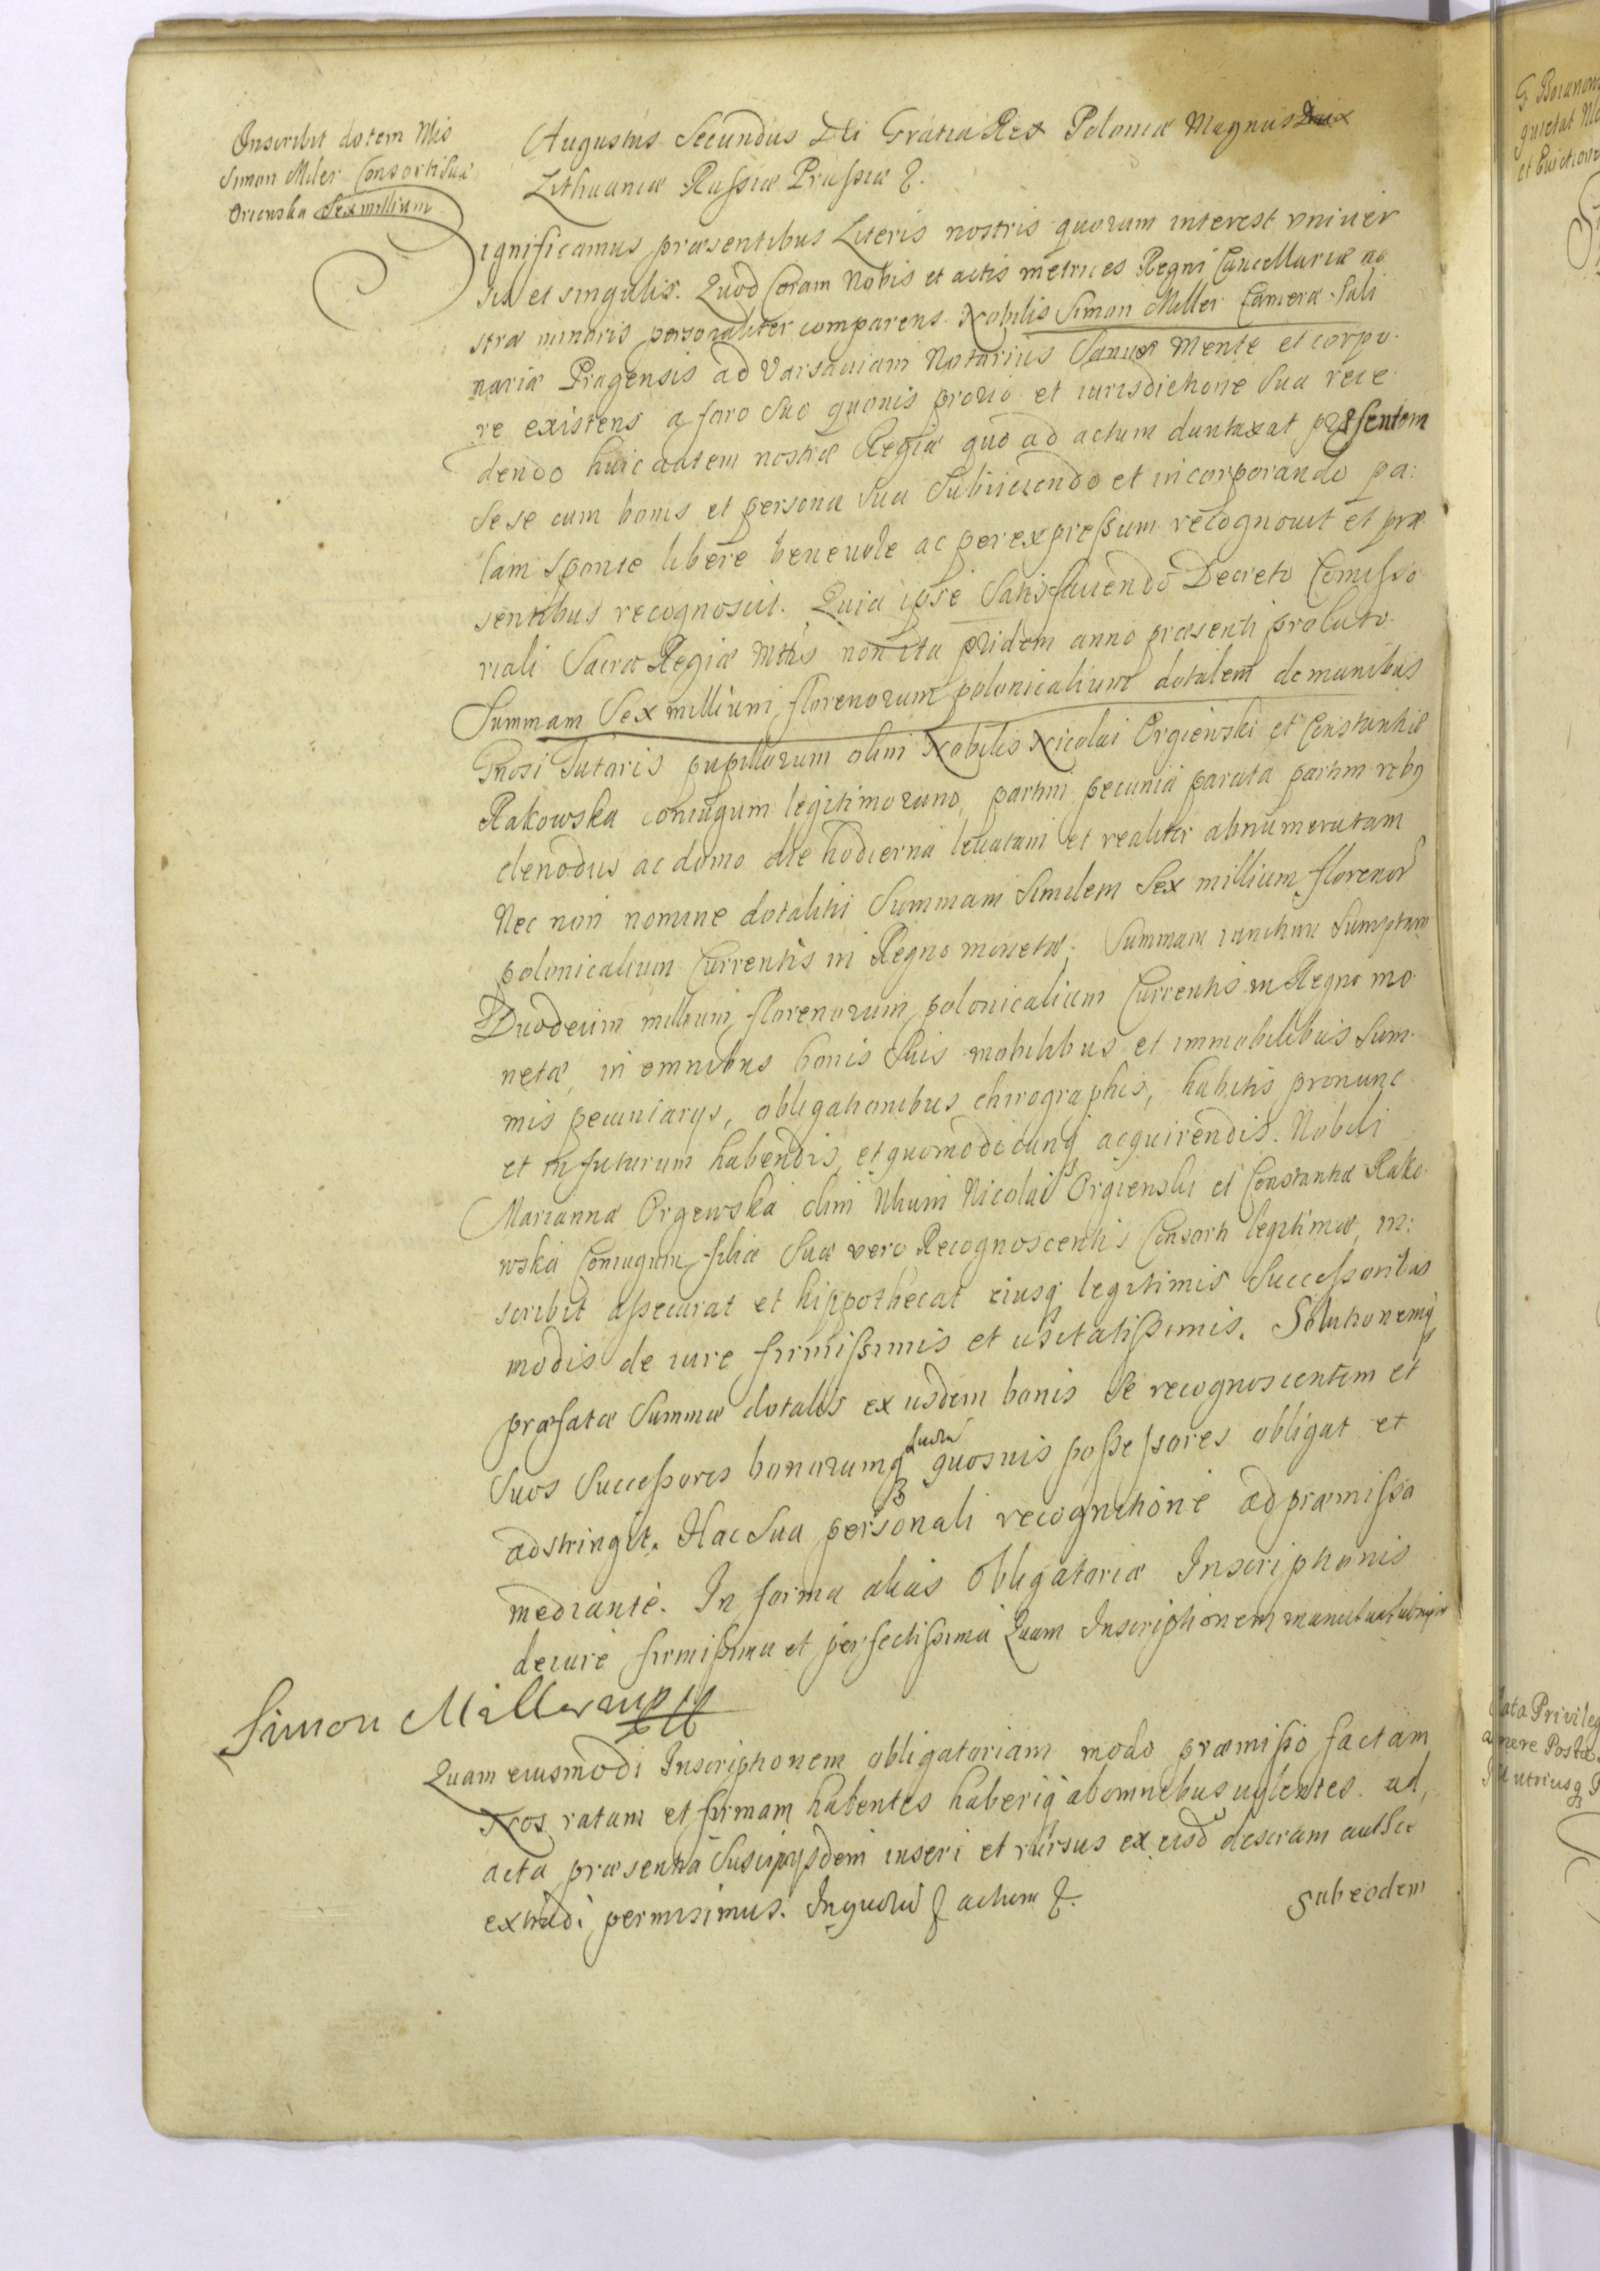 Inscribit dotem Nlis
Simon Miler Consorti Suæ
Orienska Sex millium
Augustus Secundus Dei Gratia Rex Poloniæ Magnus Dux
Lithuaniæ Russiæ Prussiæ &.
Significamus præsentibus Literis nostris quorum interest vniuer
sis et singulis. Quod Coram Nobis et actis metrices Regni Cancellariæ no
stræ minoris personaliter comparens Nobilis Simon Miller Cameræ Sali
nariæ Pragensis ad Varsaviam Notarius Sanus Mente et corpo.
re existens a foro suo quouis proprio et iurisdictione sua rece
dendo huic autem nostræ Regiæ quo ad actum duntaxat præsentem
se se cum bonis et persona sua Subiiciendo et incorporando pa:
lam sponte libere beneuole ac per expressum recognouit et præ
sentibus recognoscit. Quia ipse Satisfaciendo Decreto Comisso
riali Sacræ Regiæ Mttis non ita pridem anno præsenti prolato
Summam Sex millium florenorum polonicalium dotalem de manibus
Gnosi Tutoris pupillorum olim Nobilis Nicolai Orgiewski et Constantiæ
Rakowska coniugum legitimorum, partim pecunia parata partim rebg
clenodiis ac domo die hodierna leuatam et realiter abnumeratam
Nec non nomine dotalitii Summam similem Sex millium florenor
polonicalium Currentis in Regno monetæ. Summam iunctim Sumptam
Duodecim millium florenorum polonicalium Currentis in Regno mo
netæ, in omnibus bonis suis mobilibus et immobilibus sum.
mis pecuniarys, obligationibus chirographis, habitis pronunc
et in futurum habendis, et quomodocunq acquirendis. Nobili
Marianna Orgewska olim Nlium Nicolai Orgienski et Constantiæ Rako
wska Coniugum filiæ suæ vero Recognoscentis Consorti legitimæ, in:
scribit assecurat et hippothecat eiusq legitimis Successoribus
modis de iure firmissimis et usitatissimis. Solutionemq
præfatæ Summæ dotalis ex iisdem bonis se recognoscentem et
suos Successores bonorumq quosuis possessores obligat et
adstringit. Hac sua personali recognitione ad præmissa
mediante. In forma alias Obligatoriæ Inscriptionis
de iure firmissima et perfectissima Quam Inscriptionem manu sua
Simon Miller mpp
Quam eiusmodi Inscriptionem obligatoriam modo præmisso factam
Nos ratam et firmam habentes haberiq ab omnibus volentes. ad,
acta præsentia Suscipi ysdem inseri et rursus ex eisd
extradi permisimus. In quoru & actum &.
Sub eodem
G
quietat
et
Data Privileg
Postæ
utriusq